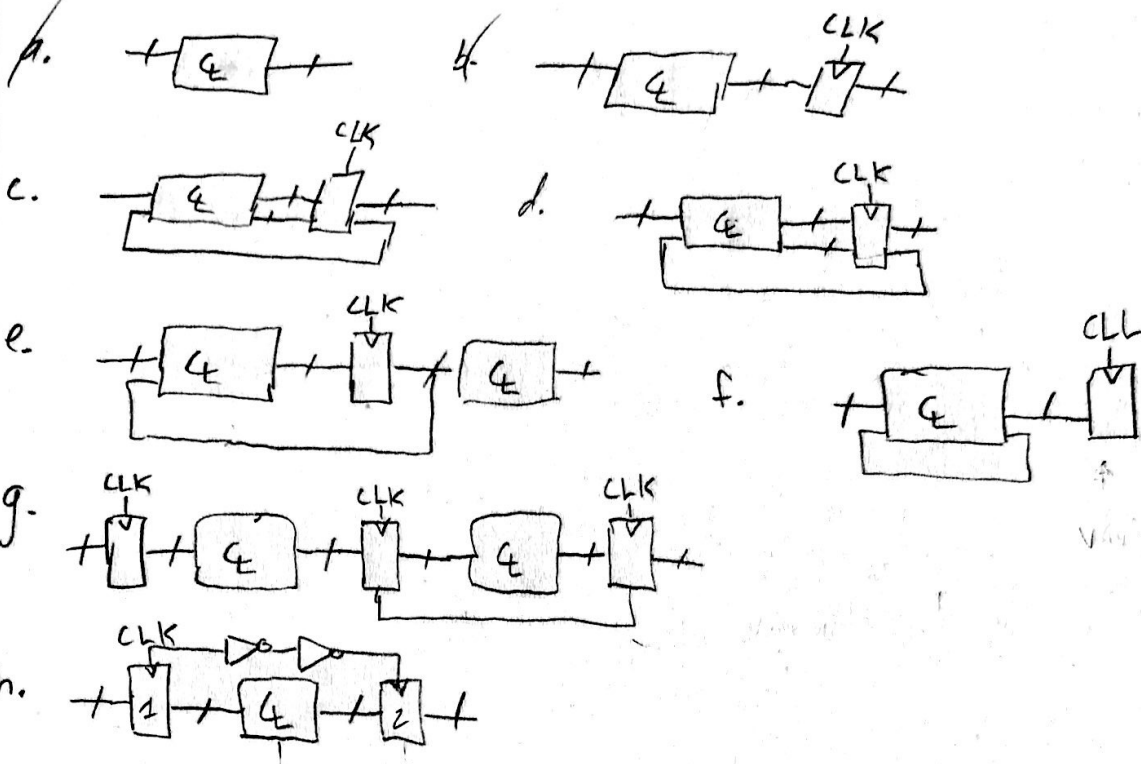 a. CL b. CL CLK
c. CL CLK d. CL CLK
e. CL CLK CL f. CL CLL
g. CLK CL CLK CL CLK
h. CLK 1 CL 2